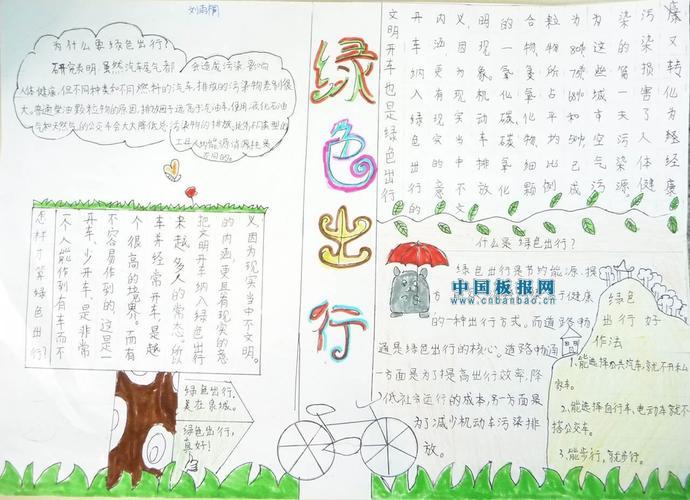 为什么要绿色出行?
研究表明,虽然汽车尾气都会造成污染,影响
人体健康,但不同种类和不同燃料的汽车,排放的污染物差别很
大。普通柴油颗粒物的原因,排放因子远高于汽油车,使用液化石油
气和天然气的公交车会大大降低总污染物的排放。此外不同类型的
工具人均能源消耗是
不同的。
绿色出行
文明开车也是绿色出行
开车纳入绿色出行的
内涵更有现实的意
义,因为现实当中不文
明的现象。机动车排放
的一氧化碳、碳氢化
合物、氮氧化物、细颗
粒物所占平均比例
为80%、75%、68%和50%,已成
为这些城市空气污
染的一大污染源。
污染损害了人体健
康,又转化为经
怎样才算绿色出行?
一个人能作到有车而不
开车、少开车,是非常
不容易作到的,这是一
个很高的境界。而有
车并经常开车,是越
来越多人的常态。所以
把文明开车纳入绿色出行
的内涵,更具有现实的意
义。因为现实当中不文明。
绿色出行,
美在泉城。
绿色出行,
真好!
什么是绿色出行?
绿色出行是节约能源、提
的一种出行方式。而道路畅
通是绿色出行的核心。道路畅通
一方面是为了提高出行效率,降
低社会运行的成本,另一方面是
为了减少机动车污染排
放。
中国板报网
www.cnbanbao.cn
绿色
出行好
作法
1.能选择公共汽车,就不开私
家车。
2.能选择自行车、电动车就不
搭公交车。
3.能步行,就步行。